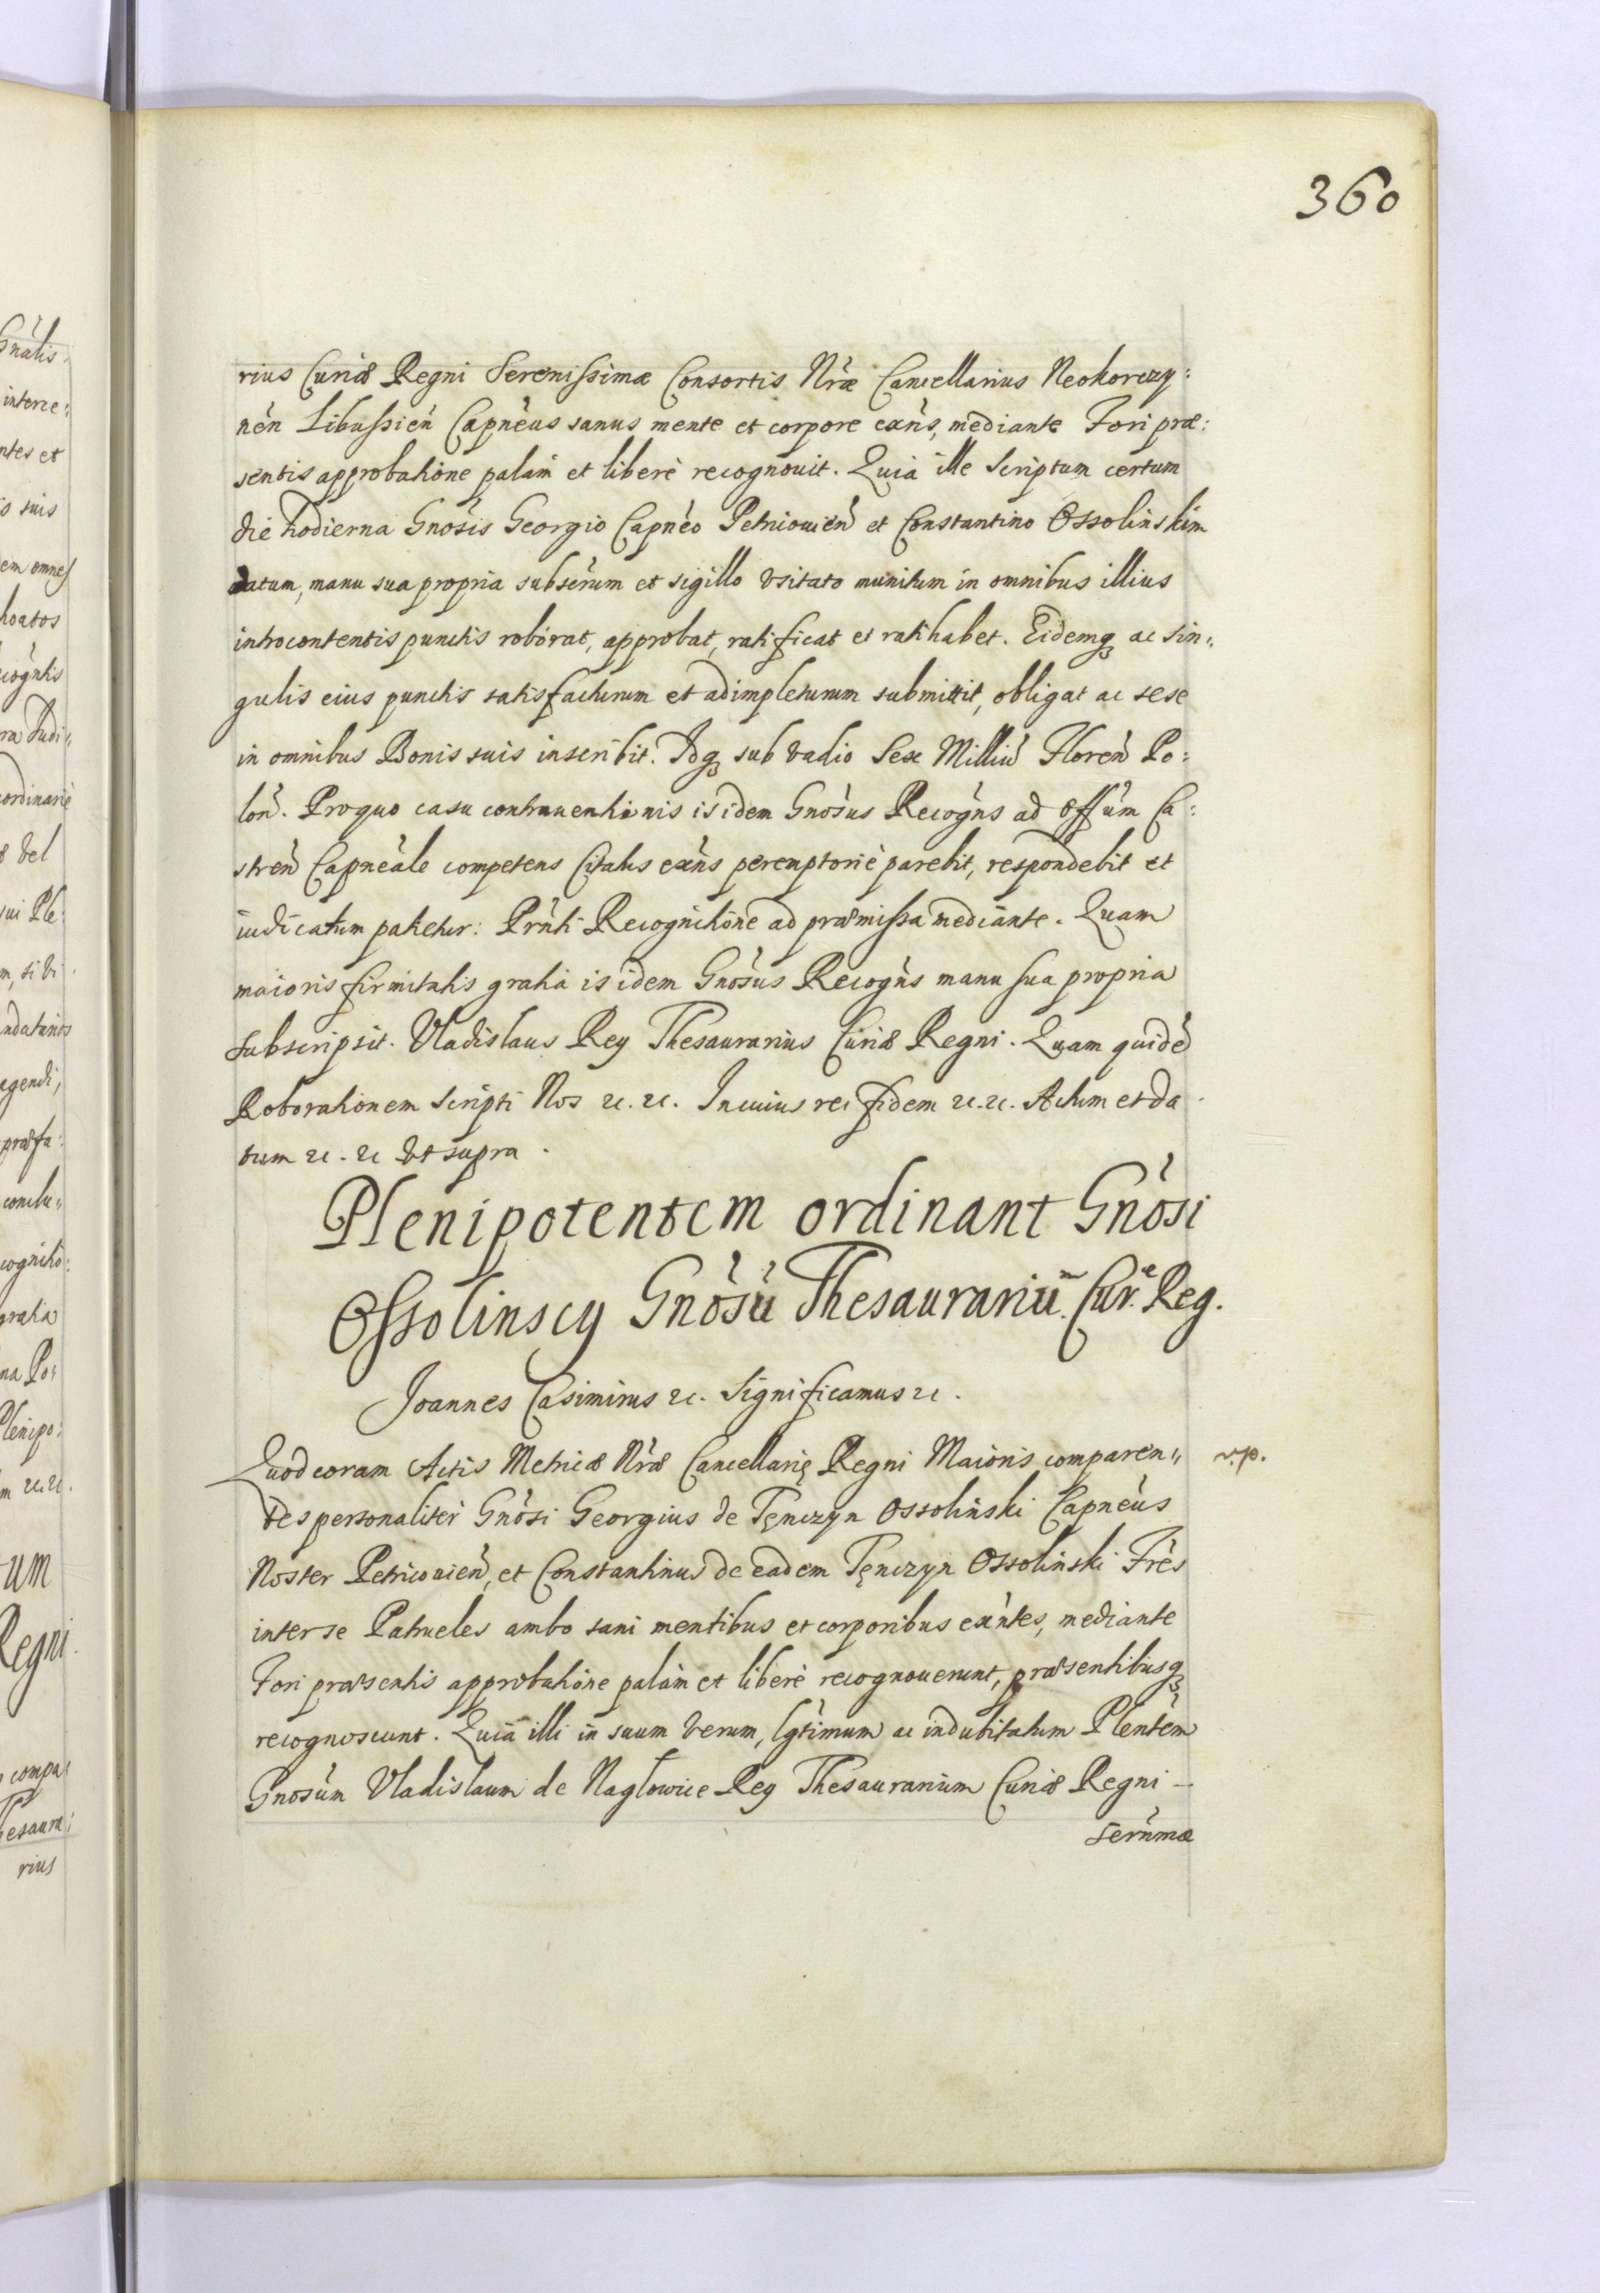 360
rius Curiæ Regni Serenissimæ Consortis Nr̃æ Cancellarius Neokorczy:
nẽn Libussieñ Capnẽus sanus mente et corpore exñs, mediante Fori præ:
sentis approbatione palàm et liberè recognouit. Quia ille Scriptum certum
die hodierna Gnõsis Georgio Capnẽo Petriouieñ et Constantino Ossolinskim
datum, manu sua propria subscr̃um et sigillo vsitato munitum in omnibus illius
introcontentis punctis roborat, approbat, ratificat et ratihabet. Eidemq; ac sin„
gulis eius punctis satisfacturum et adimpleturum submittit, obligat ac sese
in omnibus Bonis suis inscribit. Idq; sub vadio Sex Milliũ Floreñ Po:
loñ. Pro quo casu contrauentionis is idem Gnõsus Recogñs ad Offũm Ca:
streñ Capneãle competens Citatus exñs peremptoriè parebit, respondebit et
iudicatum patietur: Prñti Recognitione ad præmissa mediante. Quam
maioris firmitatis gratia is idem Gnõsus Recogñs manu sua propria
subscripsit. Vladislaus Rey Thesaurarius Curiæ Regni. Quam quidẽ
Roborationem Scripti Nos etc. etc. In cuius rei fidem etc. etc. Actum et da
tum etc. etc. vt supra.
Plenipotentem ordinant Gnõsi
Ossolinscy Gnõsũ Thesaurariũm Curæ Reg.
Joannes Casimirus etc. Significamus etc.
Quod coram Actis Metricæ Nr̃æ Cancellarię Regni Maioris comparen„
v.p.
tes personaliter Gnõsi Georgius de Tęnczyn Ossoliński Capnẽus
Noster Petricouieñ, et Constantinus de eadem Tęnczyn Ossoliński Fr̃es
inter se Patrueles ambo sani mentibus et corporibus exñtes, mediante
Fori præsentis approbatione palàm et liberè recognouerunt, præsentibusq;
recognoscunt. Quia illi in suum verum, lgt̃imum ac indubitatum Plentẽm
Gnosũm Vladislaum de Nagłowice Rey Thesaurarium Curiæ Regni –
Serñmæ